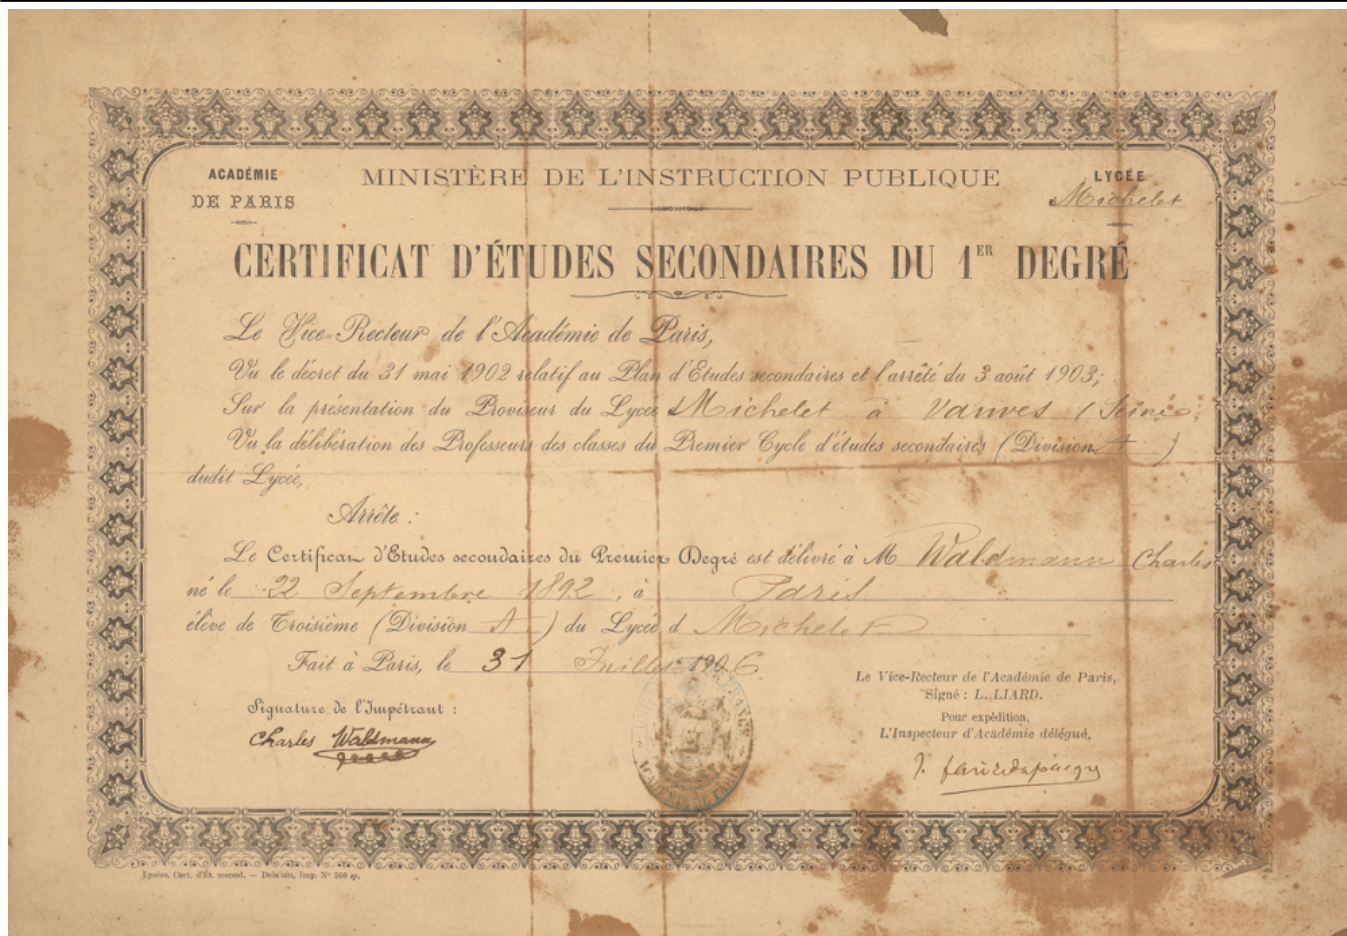 ACADÉMIE
DE PARIS
MINISTÈRE DE L'INSTRUCTION PUBLIQUE
LYCÉE
Michelet
CERTIFICAT D'ÉTUDES SECONDAIRES DU 1ER DEGRÉ
Le Vice-Recteur de l'Académie de Paris,
Vu le décret du 31 mai 1902 relatif au Plan d'Etudes secondaires et l'arrêté du 3 août 1903;
Sur la présentation du Proviseur du Lycée Michelet à Vanves (Seine)
Vu la délibération des Professeurs des classes du Premier Cycle d'études secondaires (Division A )
dudit Lycée,
Arrête :
Le Certificat d'Etudes secondaires du Premier Degré est délivré à M Waldmann Charles
né le 22 Septembre 1892, à Paris
élève de Troisième (Division A ) du Lycée d Michelet
Fait à Paris, le 31 Juillet 1906.
Signature de l'Impétrant :
Charles Waldmann
Le Vice-Recteur de l'Académie de Paris,
Signé : L. LIARD.
Pour expédition,
L'Inspecteur d'Académie délégué,
ACADÉMIE DE PARIS
Lycées. Cert. d'Ét. second. — Imp. N° 300